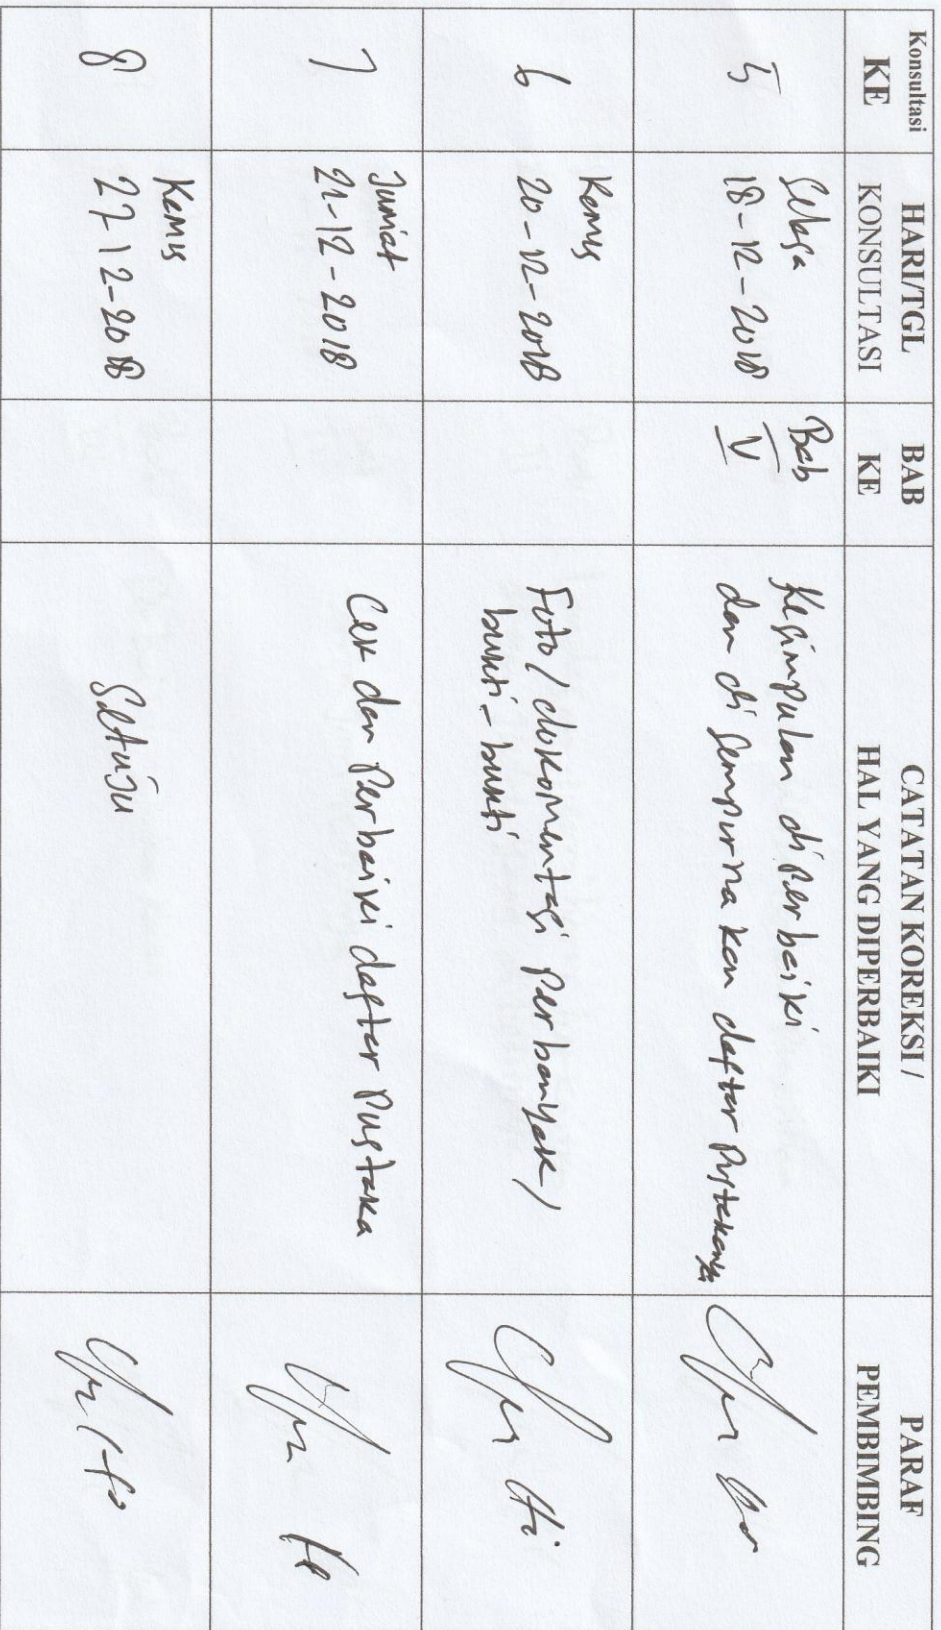 Konsultasi
KE
HARI/TGL
KONSULTASI
BAB
KE
CATATAN KOREKSI /
HAL YANG DIPERBAIKI
PARAF
PEMBIMBING
5
Selasa
18-12-2018
Bab
IV
Kesimpulan diperbaiki
dan di sempurna kan daftar Pustakanya
6
Kamis
20-12-2018
Foto / dokomentasi Perbanyak /
bukti-bukti
7
Jumiat
21-12-2018
Cek dan Perbaiki daftar Pustaka
8
Kamis
27-12-2018
Setuju